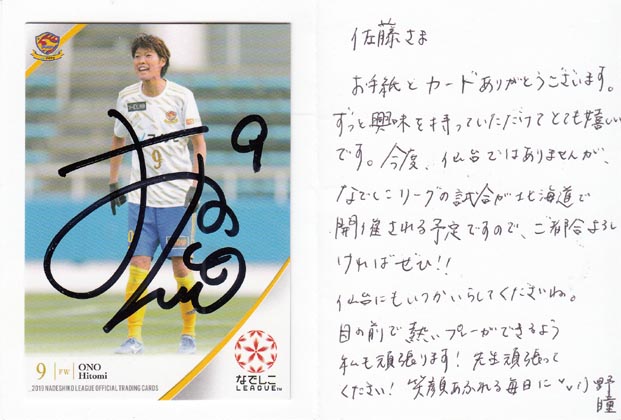 9
9
9 FW ONO
Hitomi
2019 NADESHIKO LEAGUE OFFICIAL TRADING CARDS
なでしこ
LEAGUE
佐藤さま
お手紙とカードありがとうございます。
ずっと興味を持っていただけてとても嬉しい
です。今度、仙台ではありませんが、
なでしこリーグの試合が北海道で
開催される予定ですので、ご都合よろし
ければぜひ!!
仙台にもいつかいらしてくださいね。
目の前で熱いプレーができるよう
私も頑張ります! 先生頑張って
ください! 笑顔あふれる毎日に
野
瞳